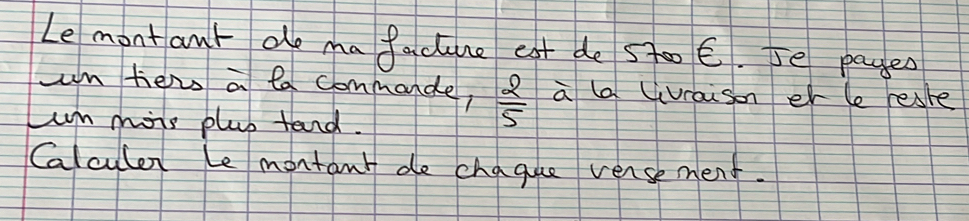 Le montant de ma facture est de 5700 €. Je payes
un tiers à la commande, 2/5 à la livraison et le reste
un mois plus tard.
Calculer le montant de chaque versement.